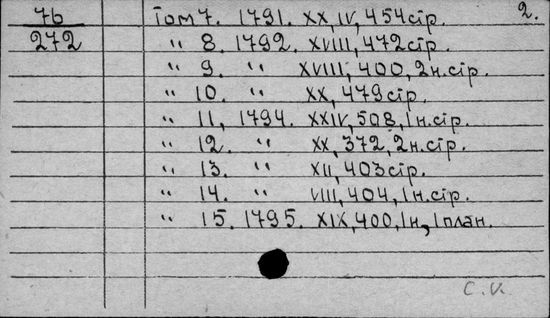 76
272
2.
Том 7. 1791. XX, IV, 454 сір.
" 8. 1792. XVIII, 472 сір.
" 9. " XVIII, 400, 2 н. сір.
" 10. " XX, 479 сір.
" 11, 1794. XXIV, 508, 1 н. сір.
" 12. " XX, 372, 2 н. сір.
" 13. " XII, 403 сір.
" 14. " VIII, 404, 1 н. сір.
" 15. 1795. XIX, 400, 1 н, 1 план.
С. К.